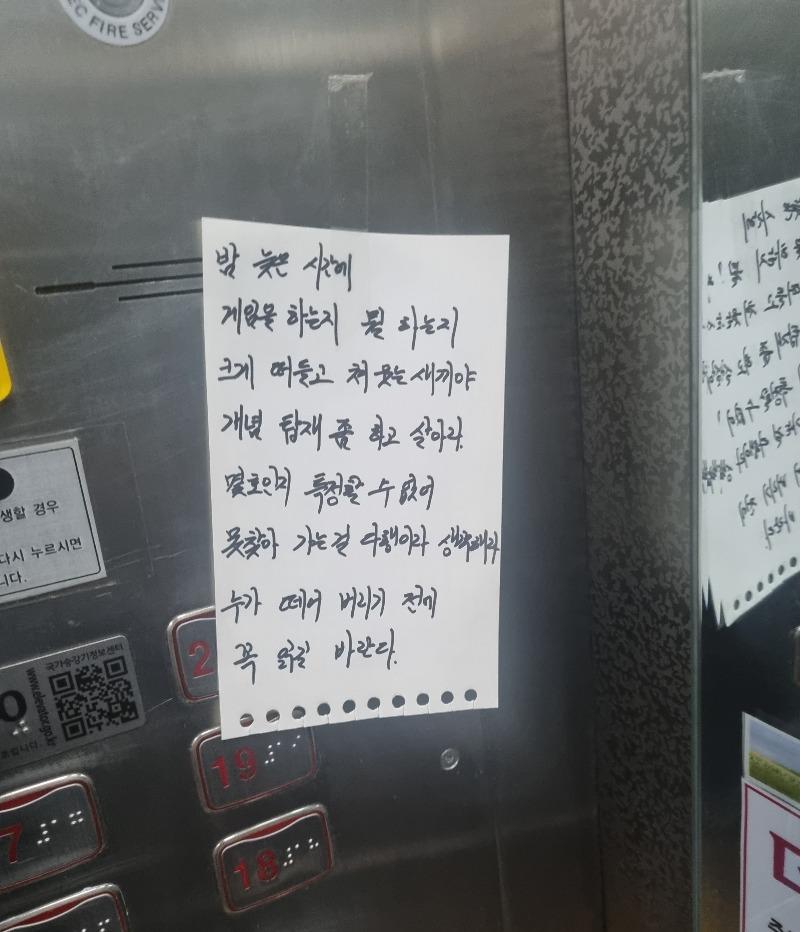 EC FIRE SERV
밤 늦은 시간에
게임을 하는지 뭘 하는지
크게 떠들고 쳐 웃는 새끼야
개념 탑재 좀 하고 살아라.
몇호인지 특정할 수 없어
못찾아 가는걸 다행이라 생각해라
누가 떼어 버리기 전에
꼭 읽길 바란다.
생할 경우
다시 누르시면
니다.
국가승강기정보센터
www.elevator.go.kr
2
19
7
18